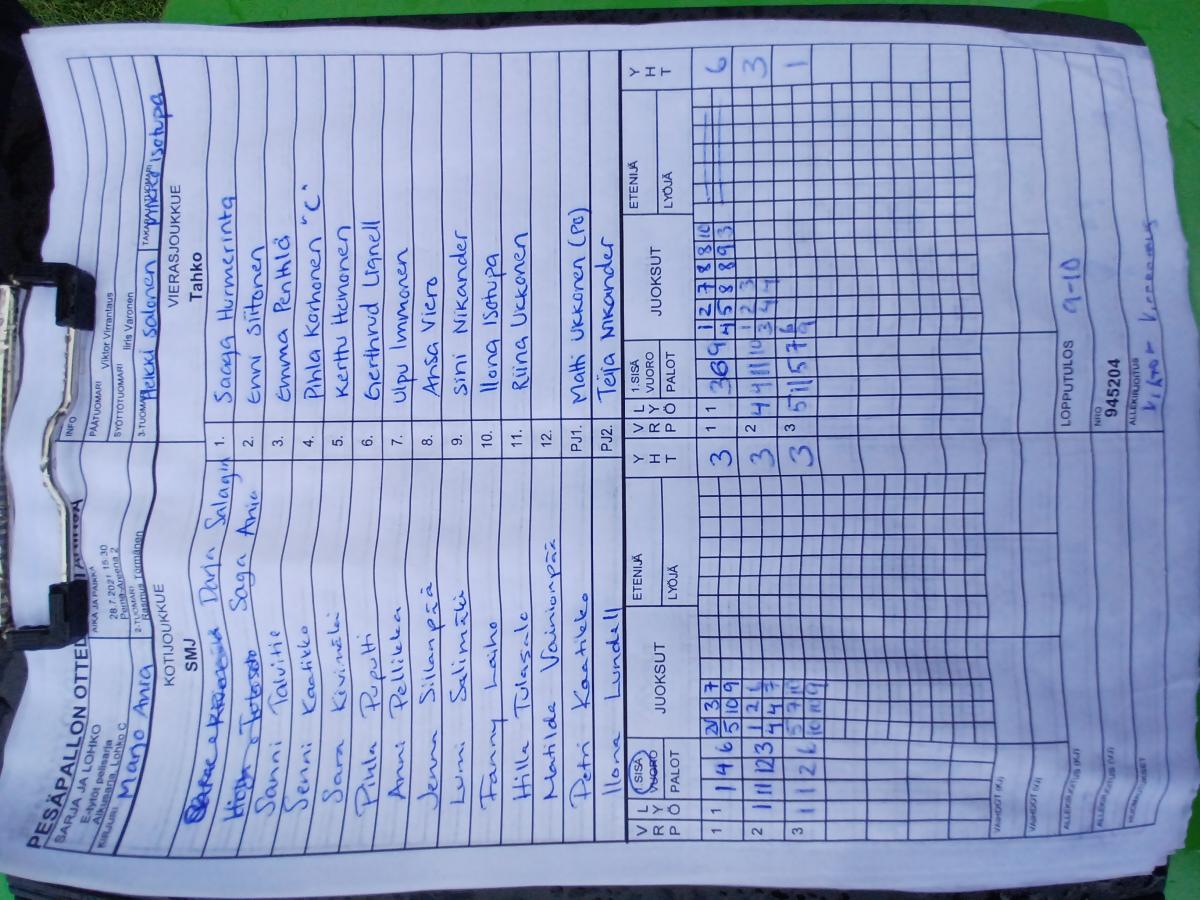 PESÄPALLON OTTE
SARJA JA LOHKO
E-tytöt pelisarja
Alkusarja, Lohko C
KIRJURI
Marjo Ania
AIKA JA PAIKKA
28.7.2021 15:30
Pernä-Areena 2
2-TUOMARI
Rasmus Tormänen
INFO
PÄÄTUOMARI Viktor Virrantaus
SYÖTTÖTUOMARI Iiris Varonen
3-TUOMARI Heikki Salonen TAKARAJATUOMARI Mikko Isotupa
KOTIJOUKKUE VIERASJOUKKUE
SMJ Tahko
Darja Salagin 1. Saaga Hurmerinta
Saga Ania 2. Enni Siitonen
Sanni Talvitie 3. Emma Penttilä
Senni Kaatikko 4. Pihla Korhonen "C"
Sara Kivimäki 5. Kerttu Heinonen
Pihla Puputti 6. Gerthrud Lignell
Anni Pellikka 7. Ulpu Immonen
Jenna Sillanpää 8. Ansa Viero
Lumi Salimäki 9. Sini Nikander
Fanny Laiho 10. Ilona Isotupa
Hilla Tulasalo 11. Riina Ukkonen
Matilda Vainionpää 12.
Petri Kaatikko PJ1. Matti Ukkonen (PJ)
Ilona Lundell PJ2. Teija Nikander
V R P L Y Ö 1.SISÄ VUORO PALOT JUOKSUT ETENIJÄ LYÖJÄ Y H T V R P L Y Ö 1.SISÄ VUORO PALOT JUOKSUT ETENIJÄ LYÖJÄ Y H T
1 1 1 4 6 3 7 3 1 1 3 6 9 1 2 7 8 8 10 6
5 10 9 4 5 8 8 9 3
2 11 12 3 1 2 6 3 2 4 11 10 1 2 3 3
4 4 7 3 4 4
3 1 2 6 5 7 10 3 3 5 11 5 7 6 1
10 11 9 9
VAIHDOT (KJ)
VAIHDOT (VJ)
ALLEKIRJOITUS (KJ) LOPPUTULOS 9-10
ALLEKIRJOITUS (VJ) NRO 945204
HUOMAUTUKSET ALLEKIRJOITUS